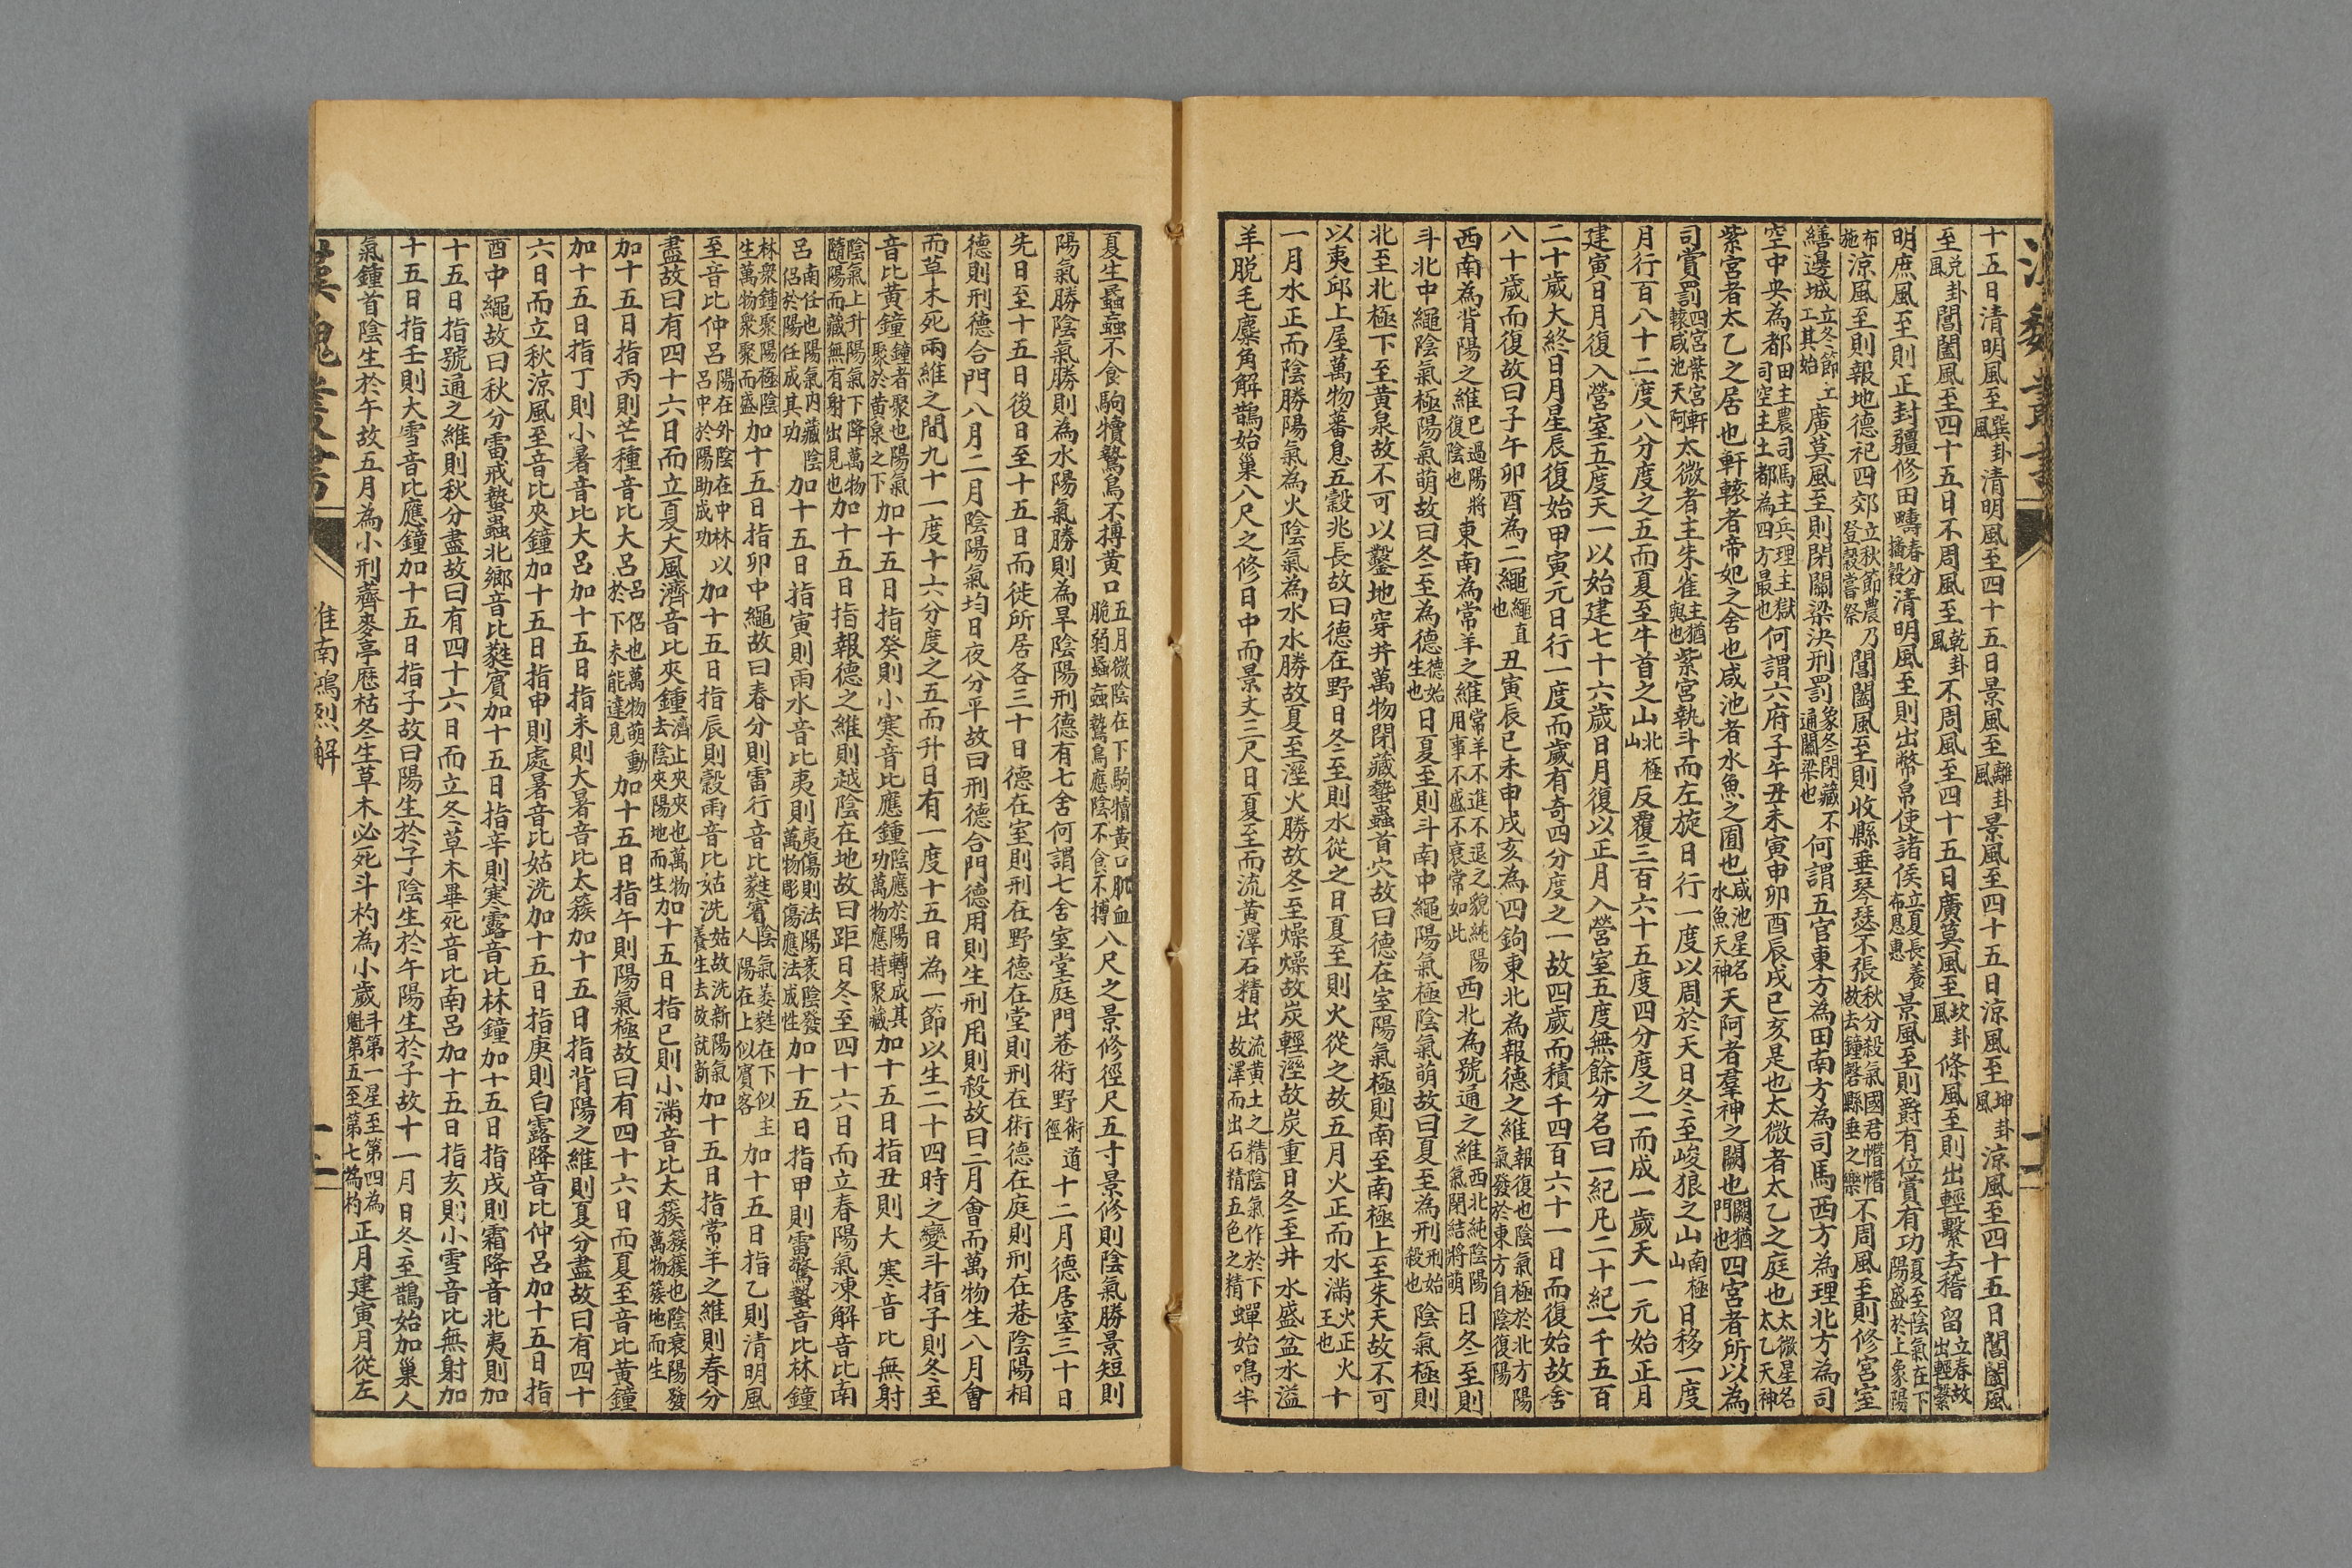 十五日清明風至巽卦風清明風至四十五日景風至離卦風景風至四十五日涼風至坤卦風涼風至四十五日閶闔風
至兌卦風閶闔風至四十五日不周風至乾卦風不周風至四十五日廣莫風至坎卦風條風至則出輕繫去稽留立春故出輕繫
明庶風至則正封疆修田疇春分播穀清明風至則出幣帛使諸侯立夏長養布恩惠景風至則爵有位賞有功夏至陰氣在下陽盛於上象陽
布施涼風至則報地德祀四郊立秋節農乃登穀嘗祭閶闔風至則收縣垂琴瑟不張秋分殺氣國君憯憯故去鐘磬縣垂之樂不周風至則修宮室
繕邊城立冬節工工其始廣莫風至則閉關梁決刑罰象冬閉藏不通關梁也何謂五官東方為田南方為司馬西方為理北方為司
空中央為都田主農司馬主兵理主獄司空主土都為四方最也何謂六府子午丑未寅申卯酉辰戌巳亥是也太微者太乙之庭也太微星名太乙天神
紫宮者太乙之居也軒轅者帝妃之舍也咸池者水魚之囿也咸池星名水魚天神天阿者羣神之闕也闕猶門也四宮者所以為
司賞罰四宮紫宮軒轅咸池天阿太微者主朱雀主猶與也紫宮執斗而左旋日行一度以周於天日冬至峻狼之山南極山日移一度
月行百八十二度八分度之五而夏至牛首之山北極山反覆三百六十五度四分度之一而成一歲天一元始正月
建寅日月復入營室五度天一以始建七十六歲日月復以正月入營室五度無餘分名曰一紀凡二十紀一千五百
二十歲大終日月星辰復始甲寅元日行一度而歲有奇四分度之一故四歲而積千四百六十一日而復始故舍
八十歲而復故曰子午卯酉為二繩繩直也丑寅辰巳未申戌亥為四鉤東北為報德之維報復也陰氣極於北方陽氣發於東方自陰復陽
西南為背陽之維巳過陽將復陰也東南為常羊之維常羊不進不退之貌純陽用事不盛不衰常如此西北為號通之維西北純陰陽氣閉結將萌日冬至則
斗北中繩陰氣極陽氣萌故曰冬至為德德始生也日夏至則斗南中繩陽氣極陰氣萌故曰夏至為刑刑始殺也陰氣極則
北至北極下至黃泉故不可以鑿地穿井萬物閉藏蟄蟲首穴故曰德在室陽氣極則南至南極上至朱天故不可
以夷邱上屋萬物蕃息五穀兆長故曰德在野日冬至則水從之日夏至則火從之故五月火正而水滿火正火王也十
一月水正而陰勝陽氣為火陰氣為水水勝故夏至溼火勝故冬至燥燥故炭輕溼故炭重日冬至井水盛盆水溢
羊脫毛麋角解鵲始巢八尺之修日中而景丈三尺日夏至而流黃澤石精出流黃土之精陰氣作於下故澤而出石精五色之精蟬始鳴半
夏生蟁蝱不食駒犢鷙鳥不搏黃口五月微陰在下駒犢黃口肌血脆弱蟁蝱鷙鳥應陰不食不搏八尺之景修徑尺五寸景修則陰氣勝景短則
陽氣勝陰氣勝則為水陽氣勝則為旱陰陽刑德有七舍何謂七舍室堂庭門巷術野術道徑十二月德居室三十日
先日至十五日後日至十五日而徙所居各三十日德在室則刑在野德在堂則刑在術德在庭則刑在巷陰陽相
德則刑德合門八月二月陰陽氣均日夜分平故曰刑德合門德用則生刑用則殺故曰二月會而萬物生八月會
而草木死兩維之間九十一度十六分度之五而升日有一度十五日為一節以生二十四時之變斗指子則冬至
音比黃鐘鐘者聚也陽氣聚於黃泉之下加十五日指癸則小寒音比應鍾陰應於陽轉成其功萬物應持聚藏加十五日指丑則大寒音比無射
陰氣上升陽氣下降萬物隨陽而藏無有射出見也加十五日指報德之維則越陰在地故曰距日冬至四十六日而立春陽氣凍解音比南
呂南任也陽氣內藏陰侶於陽任成其功加十五日指寅則雨水音比夷則夷傷則法陽衰陰發萬物彫傷應法成性加十五日指甲則雷驚蟄音比林鐘
林衆鍾聚陽極陰生萬物衆聚而盛加十五日指卯中繩故曰春分則雷行音比蕤賓陰氣萎蕤在下似主人陽在上似賓客加十五日指乙則清明風
至音比仲呂陽在外陰在中林以呂中於陽助成功加十五日指辰則穀雨音比姑洗姑故洗新陽氣養生去故就新加十五日指常羊之維則春分
盡故曰有四十六日而立夏大風濟音比夾鍾濟止夾夾也萬物去陰夾陽地而生加十五日指巳則小滿音比太簇簇簇也陰衰陽發萬物簇地而生
加十五日指丙則芒種音比大呂呂侶也萬物萌動於下未能達見加十五日指午則陽氣極故曰有四十六日而夏至音比黃鐘
加十五日指丁則小暑音比大呂加十五日指未則大暑音比太簇加十五日指背陽之維則夏分盡故曰有四十
六日而立秋涼風至音比夾鐘加十五日指申則處暑音比姑洗加十五日指庚則白露降音比仲呂加十五日指
酉中繩故曰秋分雷戒蟄蟲北鄉音比蕤賓加十五日指辛則寒露音比林鐘加十五日指戌則霜降音北夷則加
十五日指號通之維則秋分盡故曰有四十六日而立冬草木畢死音比南呂加十五日指亥則小雪音比無射加
十五日指壬則大雪音比應鐘加十五日指子故曰陽生於子陰生於午陽生於子故十一月日冬至鵲始加巢人
氣鍾首陰生於午故五月為小刑薺麥亭歷枯冬生草木必死斗杓為小歲斗第一星至第四為魁第五至第七為杓正月建寅月從左
漢魏叢書 淮南鴻烈解